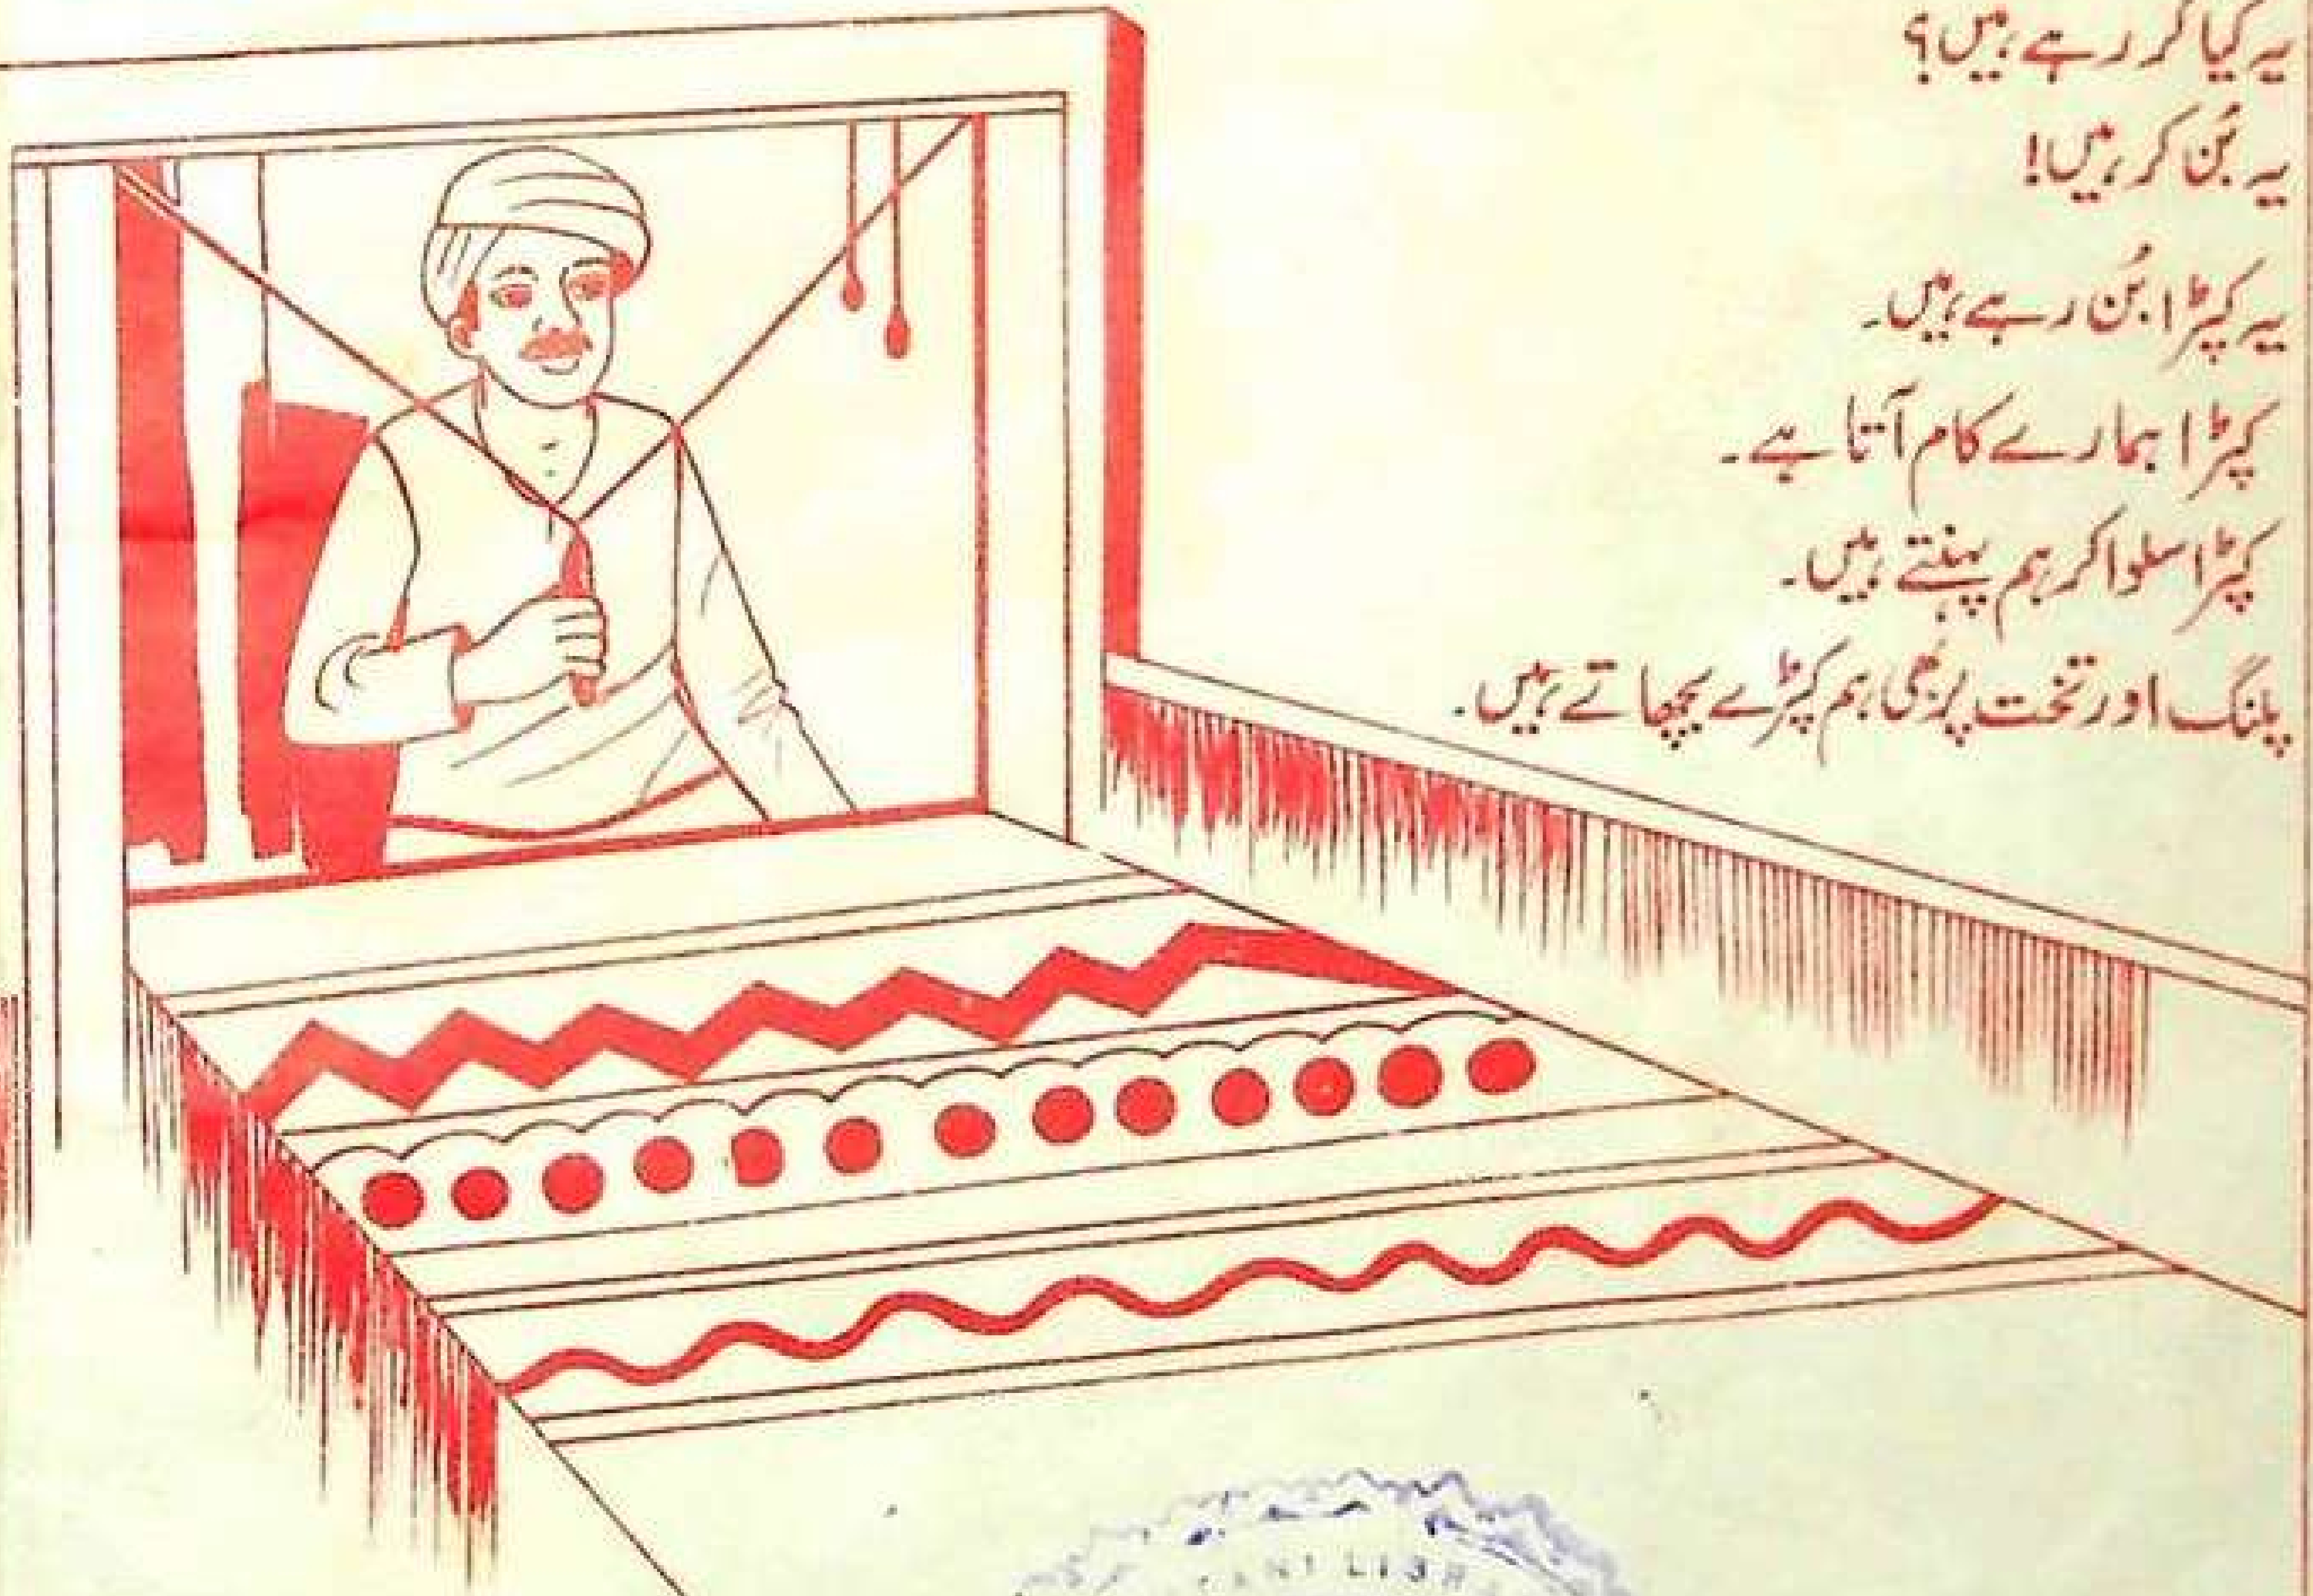 یہ کیا کر رہے ہیں؟
یہ بُن کر ہیں!
یہ کپڑا بُن رہے ہیں۔
کپڑا ہمارے کام آتا ہے۔
کپڑا سلوا کر ہم پہنتے ہیں۔
پلنگ اور تخت پر بھی ہم کپڑے بچھاتے ہیں۔